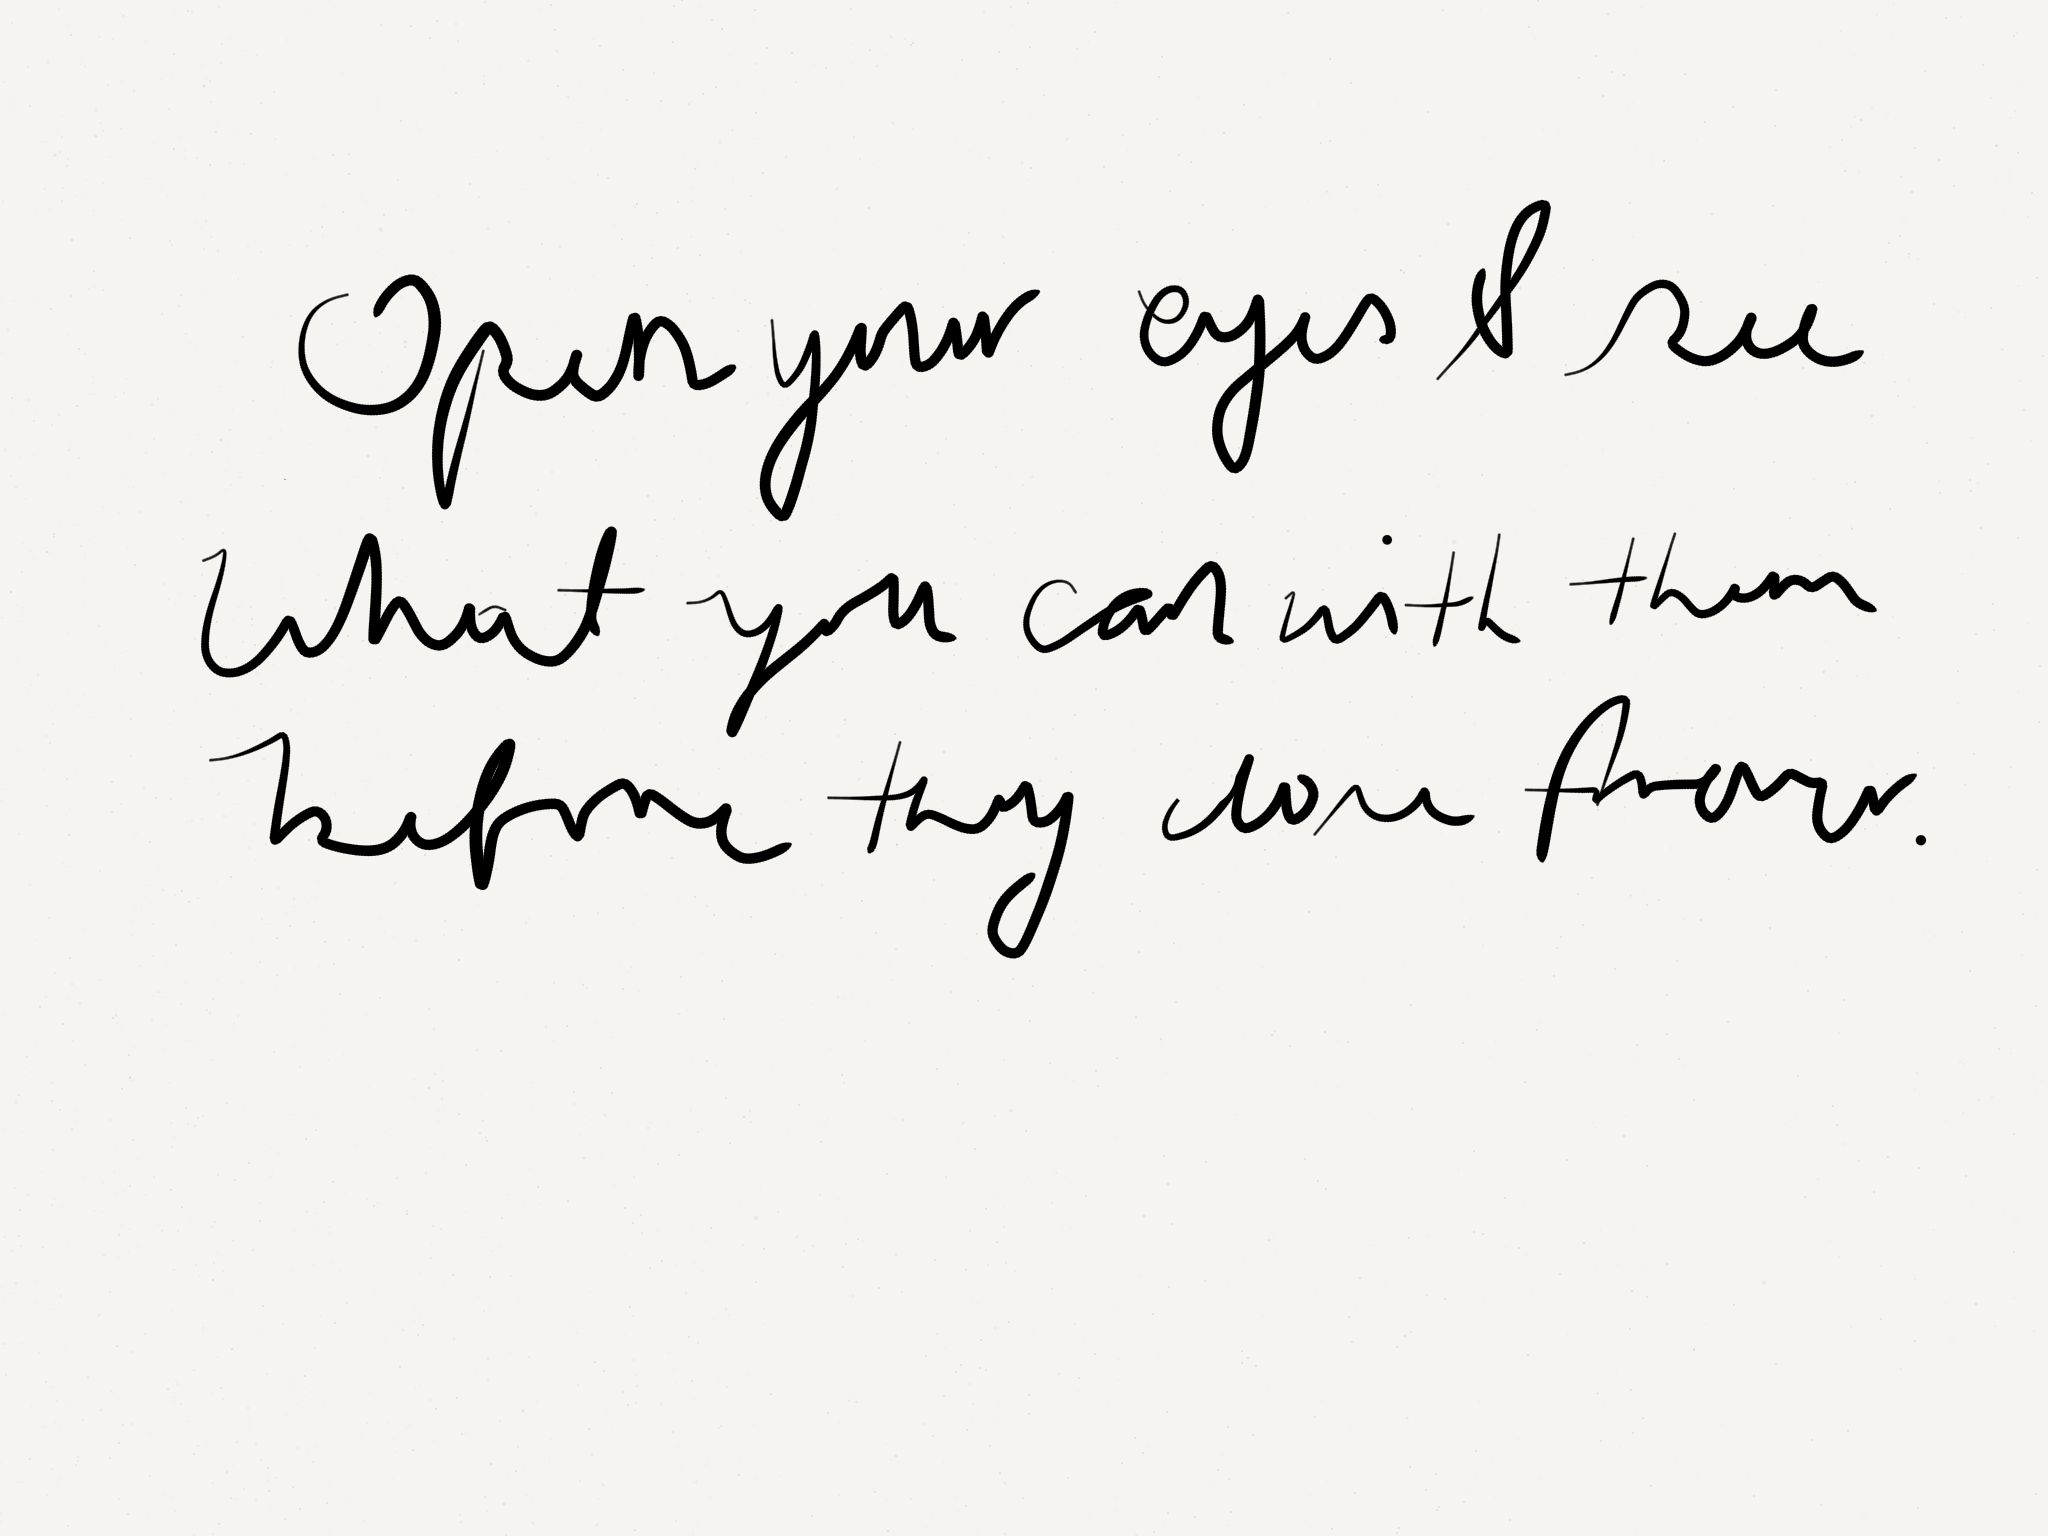 Open your eyes & see
What you can with them
before they close forever.